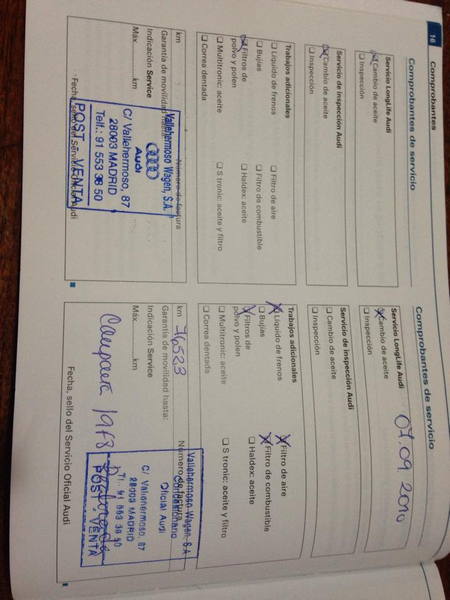 16 Comprobantes
Comprobantes de servicio
Servicio LongLife Audi
Cambio de aceite
Inspección
Servicio de inspección Audi
Cambio de aceite
Inspección
Trabajos adicionales
Líquido de frenos
Filtro de aire
Bujías
Filtro de combustible
Filtros de polvo y polen
Haldex: aceite
Multitronic: aceite
S tronic: aceite y filtro
Correa dentada
km
Número de factura
Garantía de movilidad hasta:
Indicación Service
Máx. km
Vallehermoso Wagen, S.A.
Audi
C/ Vallehermoso, 87
28003 MADRID
Telf.: 91 553 98 50
POST - VENTA
Fecha, sello del Servicio Oficial Audi
Comprobantes de servicio
07.09 2010
Servicio LongLife Audi
Cambio de aceite
Inspección
Servicio de inspección Audi
Cambio de aceite
Inspección
Trabajos adicionales
Líquido de frenos
Filtro de aire
Bujías
Filtro de combustible
Filtros de polvo y polen
Haldex: aceite
Multitronic: aceite
S tronic: aceite y filtro
Correa dentada
km
Garantía de movilidad hasta:
Indicación Service
Máx. km
Vallehermoso Wagen, S.A.
Oficial Audi
C/ Vallehermoso, 87
28003 MADRID
POST - VENTA
Campaña 19F8
Fecha, sello del Servicio Oficial Audi